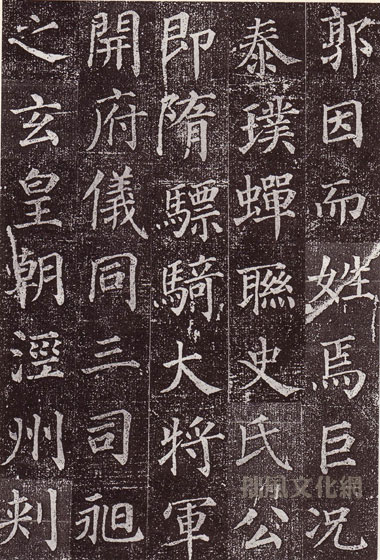 郭因而姓焉巨況
泰璞蟬聯史氏公
即隋驃騎大將軍
開府儀同三司昶
之玄皇朝涇州刾
文化網